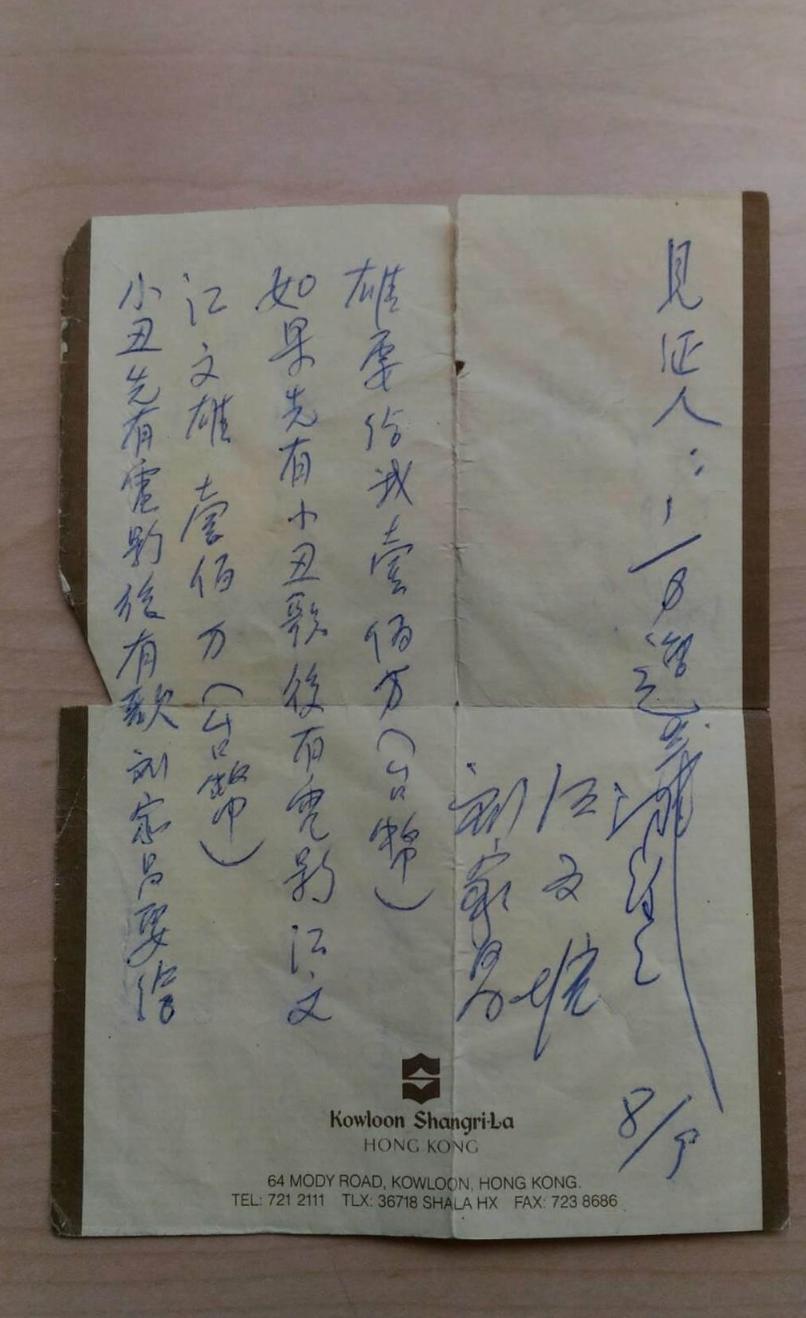 小丑先有電影後有歌刘家昌要给
江文雄壹佰万(台幣)
如果先有小丑歌後有電影江文
雄要给我壹佰万(台幣)
刘家昌
江文雄
見证人:
8/9
Kowloon Shangri-La
HONG KONG
64 MODY ROAD, KOWLOON, HONG KONG.
TEL: 721 2111 TLX: 36718 SHALA HX FAX: 723 8686